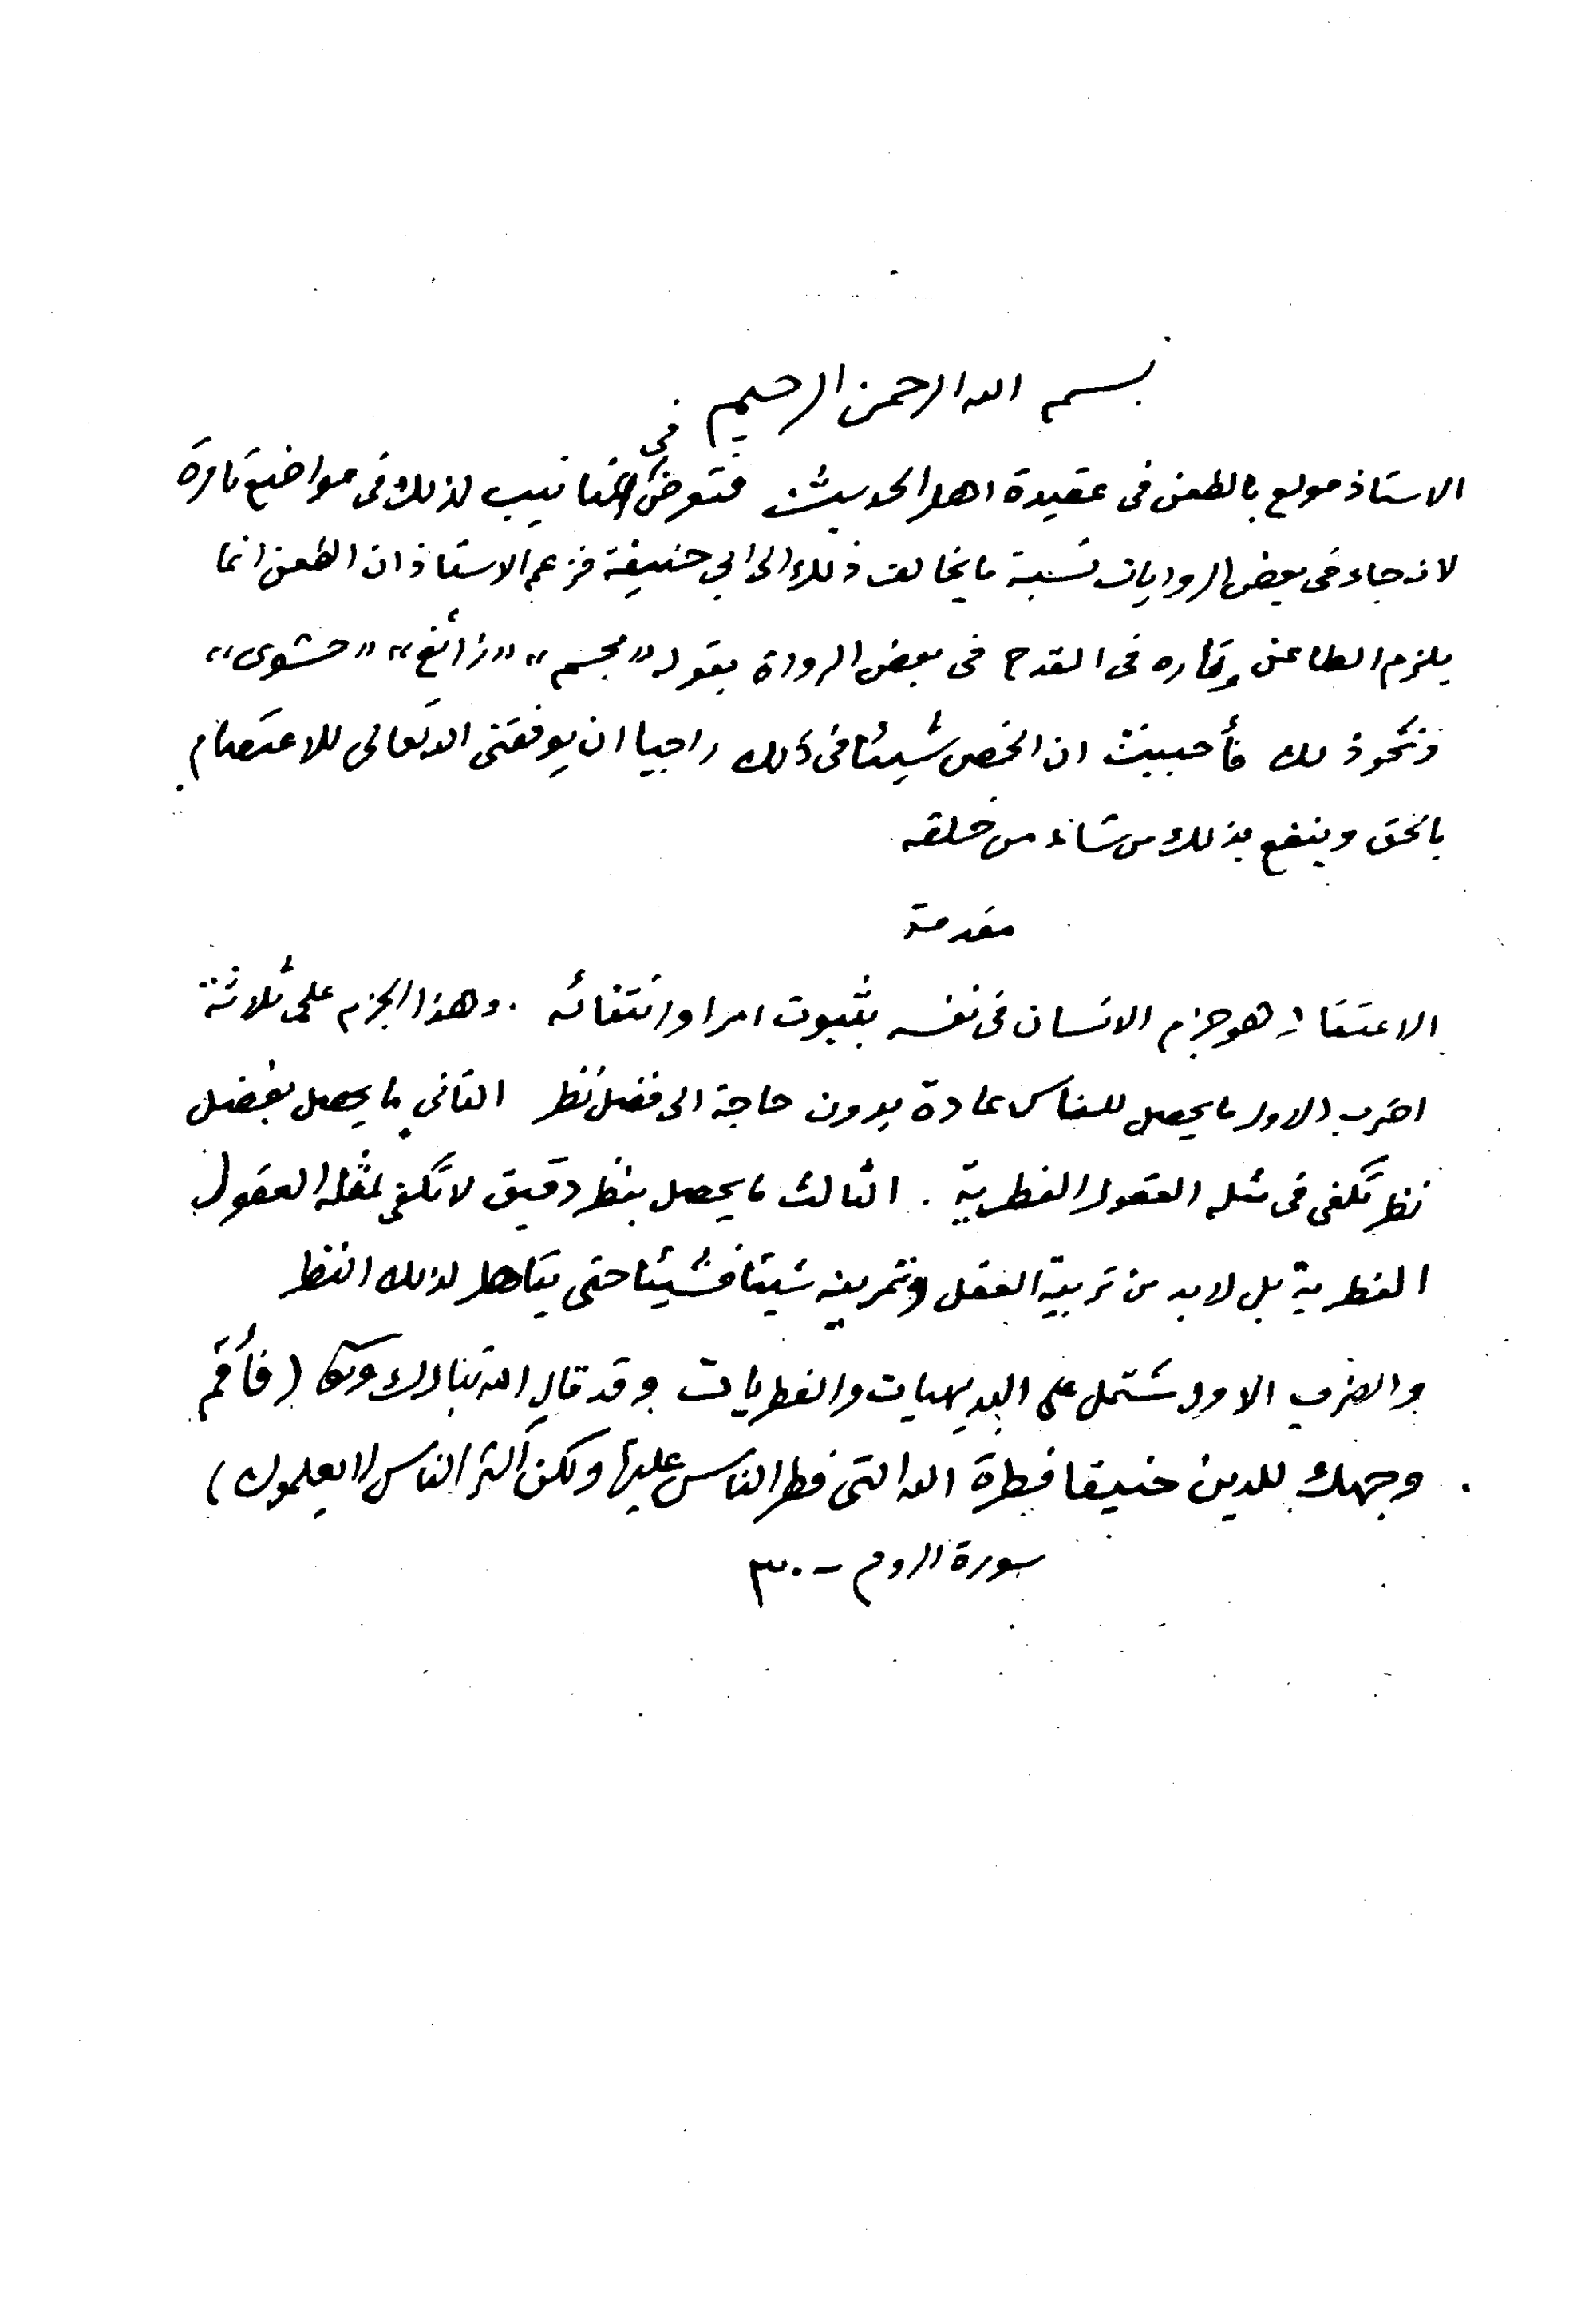 بسم الله الرحمن الرحيم
الاستاذ مولع بالطعن فى عقيدة اهل الحديث فتعرض فى التانيب لذلك فى مواضع تارة
لانه جاء فى بعض الروايات نسبة ما يخالف ذلك الى ابي حنيفة فزعم الاستاذ ان الطعن انما
يلزم الطاعن وتاره فى القدح فى بعض الرواة بقوله "مجسم" "زائغ" "حشوى"
ونحو ذلك فأحببت ان الخص شيئا فى ذلك راجيا ان يوفقنى الله تعالى للاعتصام
بالحق وينفع بذلك من شاء من خلقه
مقدمة
الاعتقاد هو جزم الانسان فى نفسه بثبوت امر او انتفائه . وهذا الجزم على ثلاثة
اضرب الاول ما يحصل للناس عادة بدون حاجة الى فضل نظر الثاني ما يحصل بفضل
نظر تكفى فى مثله العقول الفطرية . الثالث ما يحصل بنظر دقيق لا تكفى لمثله العقول
الفطرية بل لا بد من تربية العقل وتمرينه شيئا فشيئا حتى يتاهل لذلك النظر
والضرب الاول مشتمل على البديهيات والفطريات وقد قال الله تبارك وتعا (فأقم
وجهك للدين حنيفا فطرة الله التى فطر الناس عليها ولكن اكثر الناس لا يعلمون)
سورة الروم - ٣٠